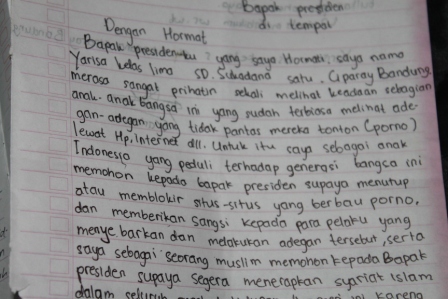 Bapak presiden
di tempat
Dengan Hormat
Bapak presidenku yang saya Hormati, saya nama
Yarisa kelas lima SD. Sukadana satu. Ciparay Bandung
merasa sangat prihatin sekali melihat keadaan sebagian
anak-anak bangsa ini yang sudah terbiasa melihat ade-
gan-adegan yang tidak pantas mereka tonton (porno)
lewat Hp, Internet dll. Untuk itu saya sebagai anak
Indonesia yang peduli terhadap generasi bangsa ini
memohon kepada bapak presiden supaya menutup
atau memblokir situs-situs yang berbau porno,
dan memberikan sangsi kepada para pelaku yang
menyebarkan dan melakukan adegan tersebut, serta
saya sebagai seorang muslim memohon kepada Bapak
presiden supaya segera menerapkan syariat Islam
dalam seluruh ini karena